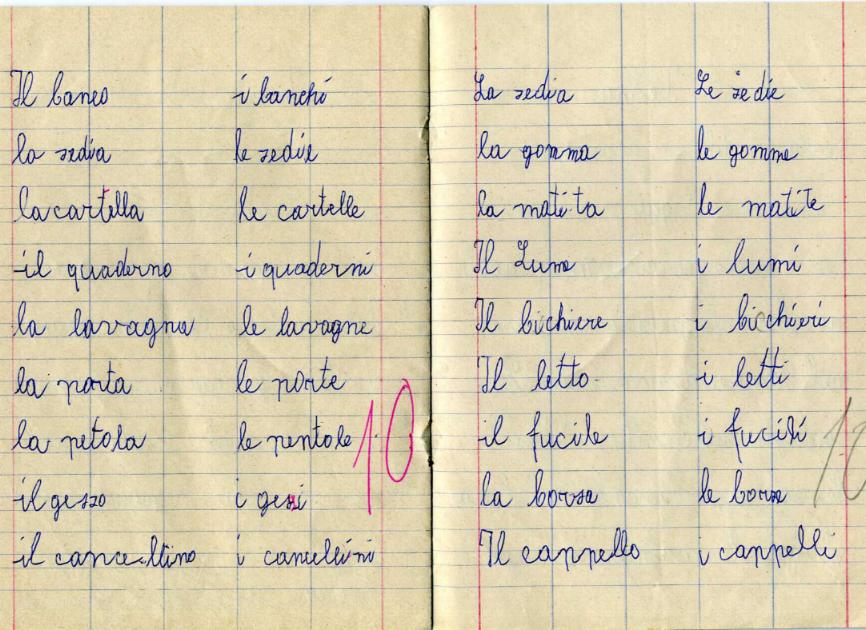 Il banco i banchi
la sedia le sedie
la cartella le cartelle
il quaderno i quaderni
la lavagna le lavagne
la porta le porte
la petola le pentole
il gesso i gessi
il cancellino i cancellini
10
La sedia Le sedie
la gomma le gomme
la matita le matite
Il Lume i lumi
Il bichiere i bichieri
Il letto i letti
il fucile i fucili
la borsa le borse
Il cappello i cappelli
10